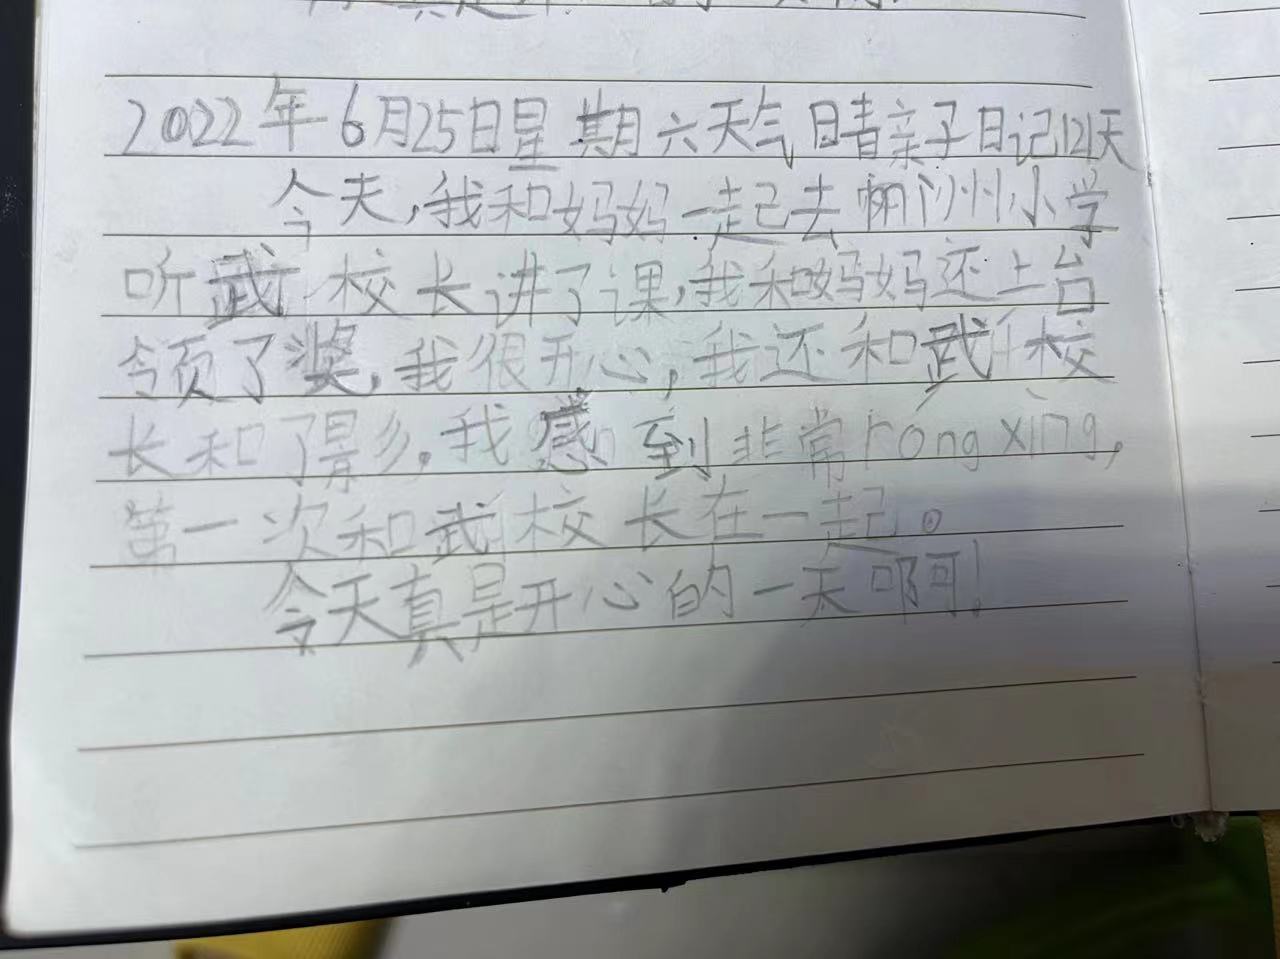 2022年6月25日星期六天气日晴亲子日记121天
今天,我和妈妈一起去柳州小学
听武校长讲了课,我和妈妈还上台
领了奖,我很开心,我还和武校
长和了影,我感到非常róngxìng,
第一次和武校长在一起。
今天真是开心的一天啊!